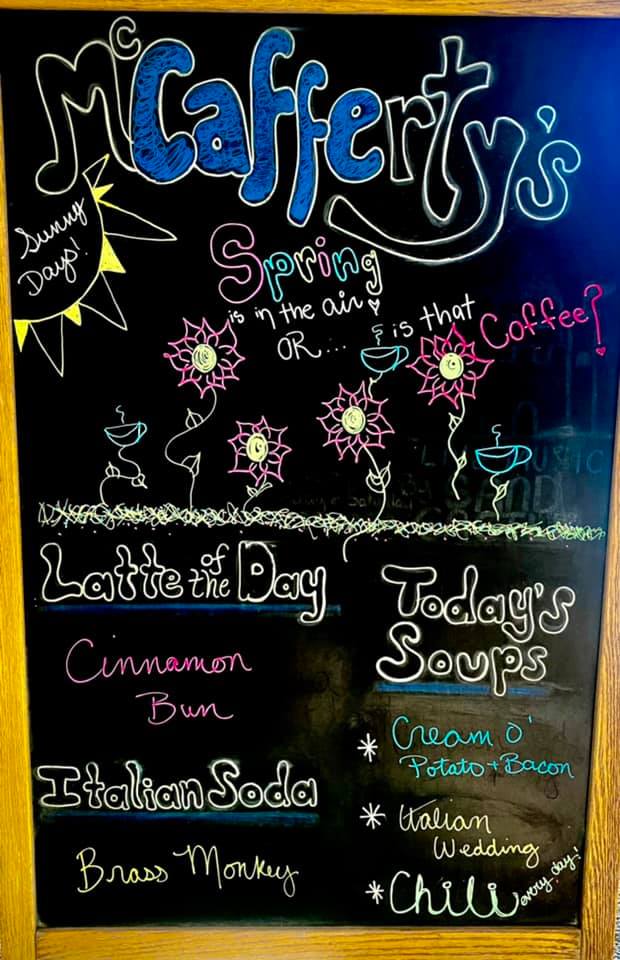 McCafferty's
Sunny
Days!
Spring
is in the air
OR... is that Coffee?
LIVE MUSIC
BAND
Latte of the Day
Cinnamon
Bun
Italian Soda
Brass Monkey
Today's
Soups
* Cream O'
Potato + Bacon
* Italian
Wedding
* Chili every day!